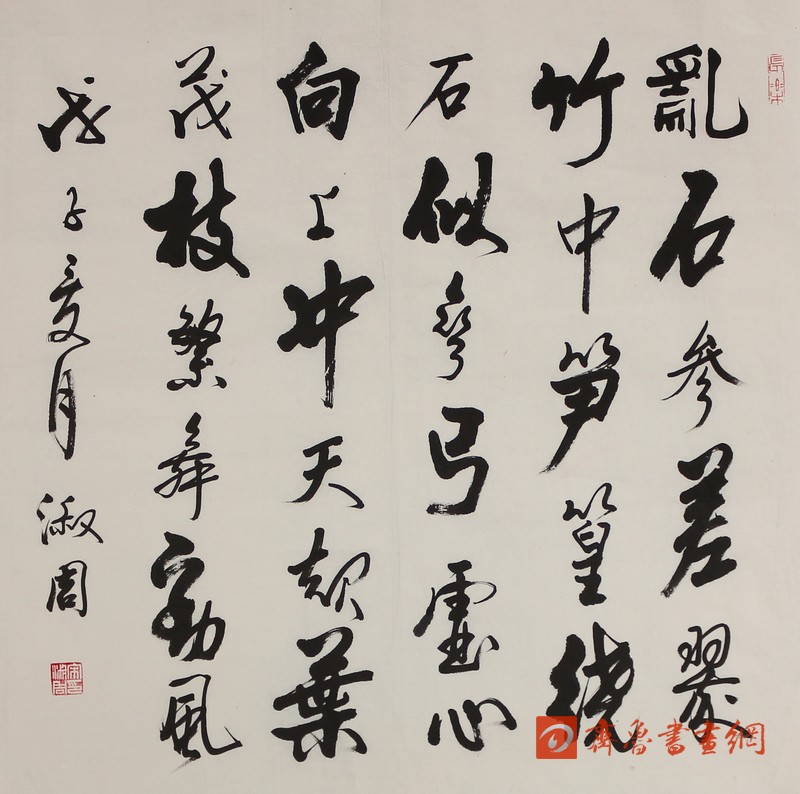 長樂
亂石參差翠
竹中笋篁繞
石似彎弓虛心
向上冲天葉
茂枝繁舞勁風
戊子夏月 淑周
齊魯書畫網